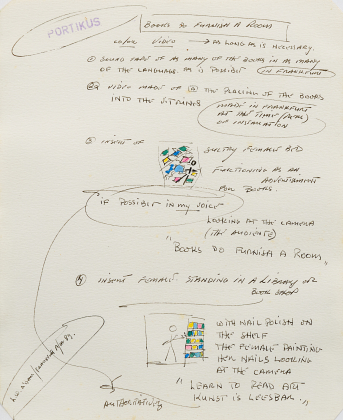 PORTIKUS
BOOKS DO FURNISH A ROOM
COLOR VIDEO → AS LONG AS IS NECESSARY.
① SOUND TAPE OF AS MANY OF THE BOOKS IN AS MANY
OF THE LANGUAGE AS IS POSSIBLE IN FRANKFURT
② VIDEO MADE OF THE PLACING OF THE BOOKS
INTO THE
MADE IN FRANKFURT
AT THE TIME
OF INSTALLATION
③ INSERT OF SULTRY FEMALE
FUNCTIONING AS AN
ADVERTISEMENT
FOR BOOKS.
IF POSSIBLE IN MY VOICE
LOOKING AT THE CAMERA
(THE AUDIENCE)
"BOOKS DO FURNISH A ROOM"
④ INSERT FEMALE STANDING IN A LIBRARY OR
BOOK SHOP
WITH NAIL POLISH ON
THE SHELF
THE FEMALE PAINTING
HER NAILS LOOKING
AT THE CAMERA
"LEARN TO READ ART
KUNST IS LEESBAR."